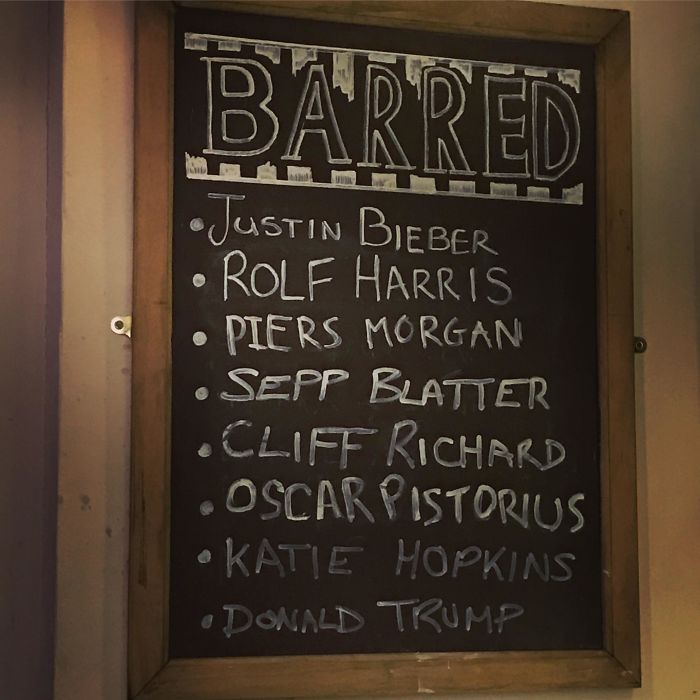 BARRED
• JUSTIN BIEBER
• ROLF HARRIS
• PIERS MORGAN
• SEPP BLATTER
• CLIFF RICHARD
• OSCAR PISTORIUS
• KATIE HOPKINS
• DONALD TRUMP